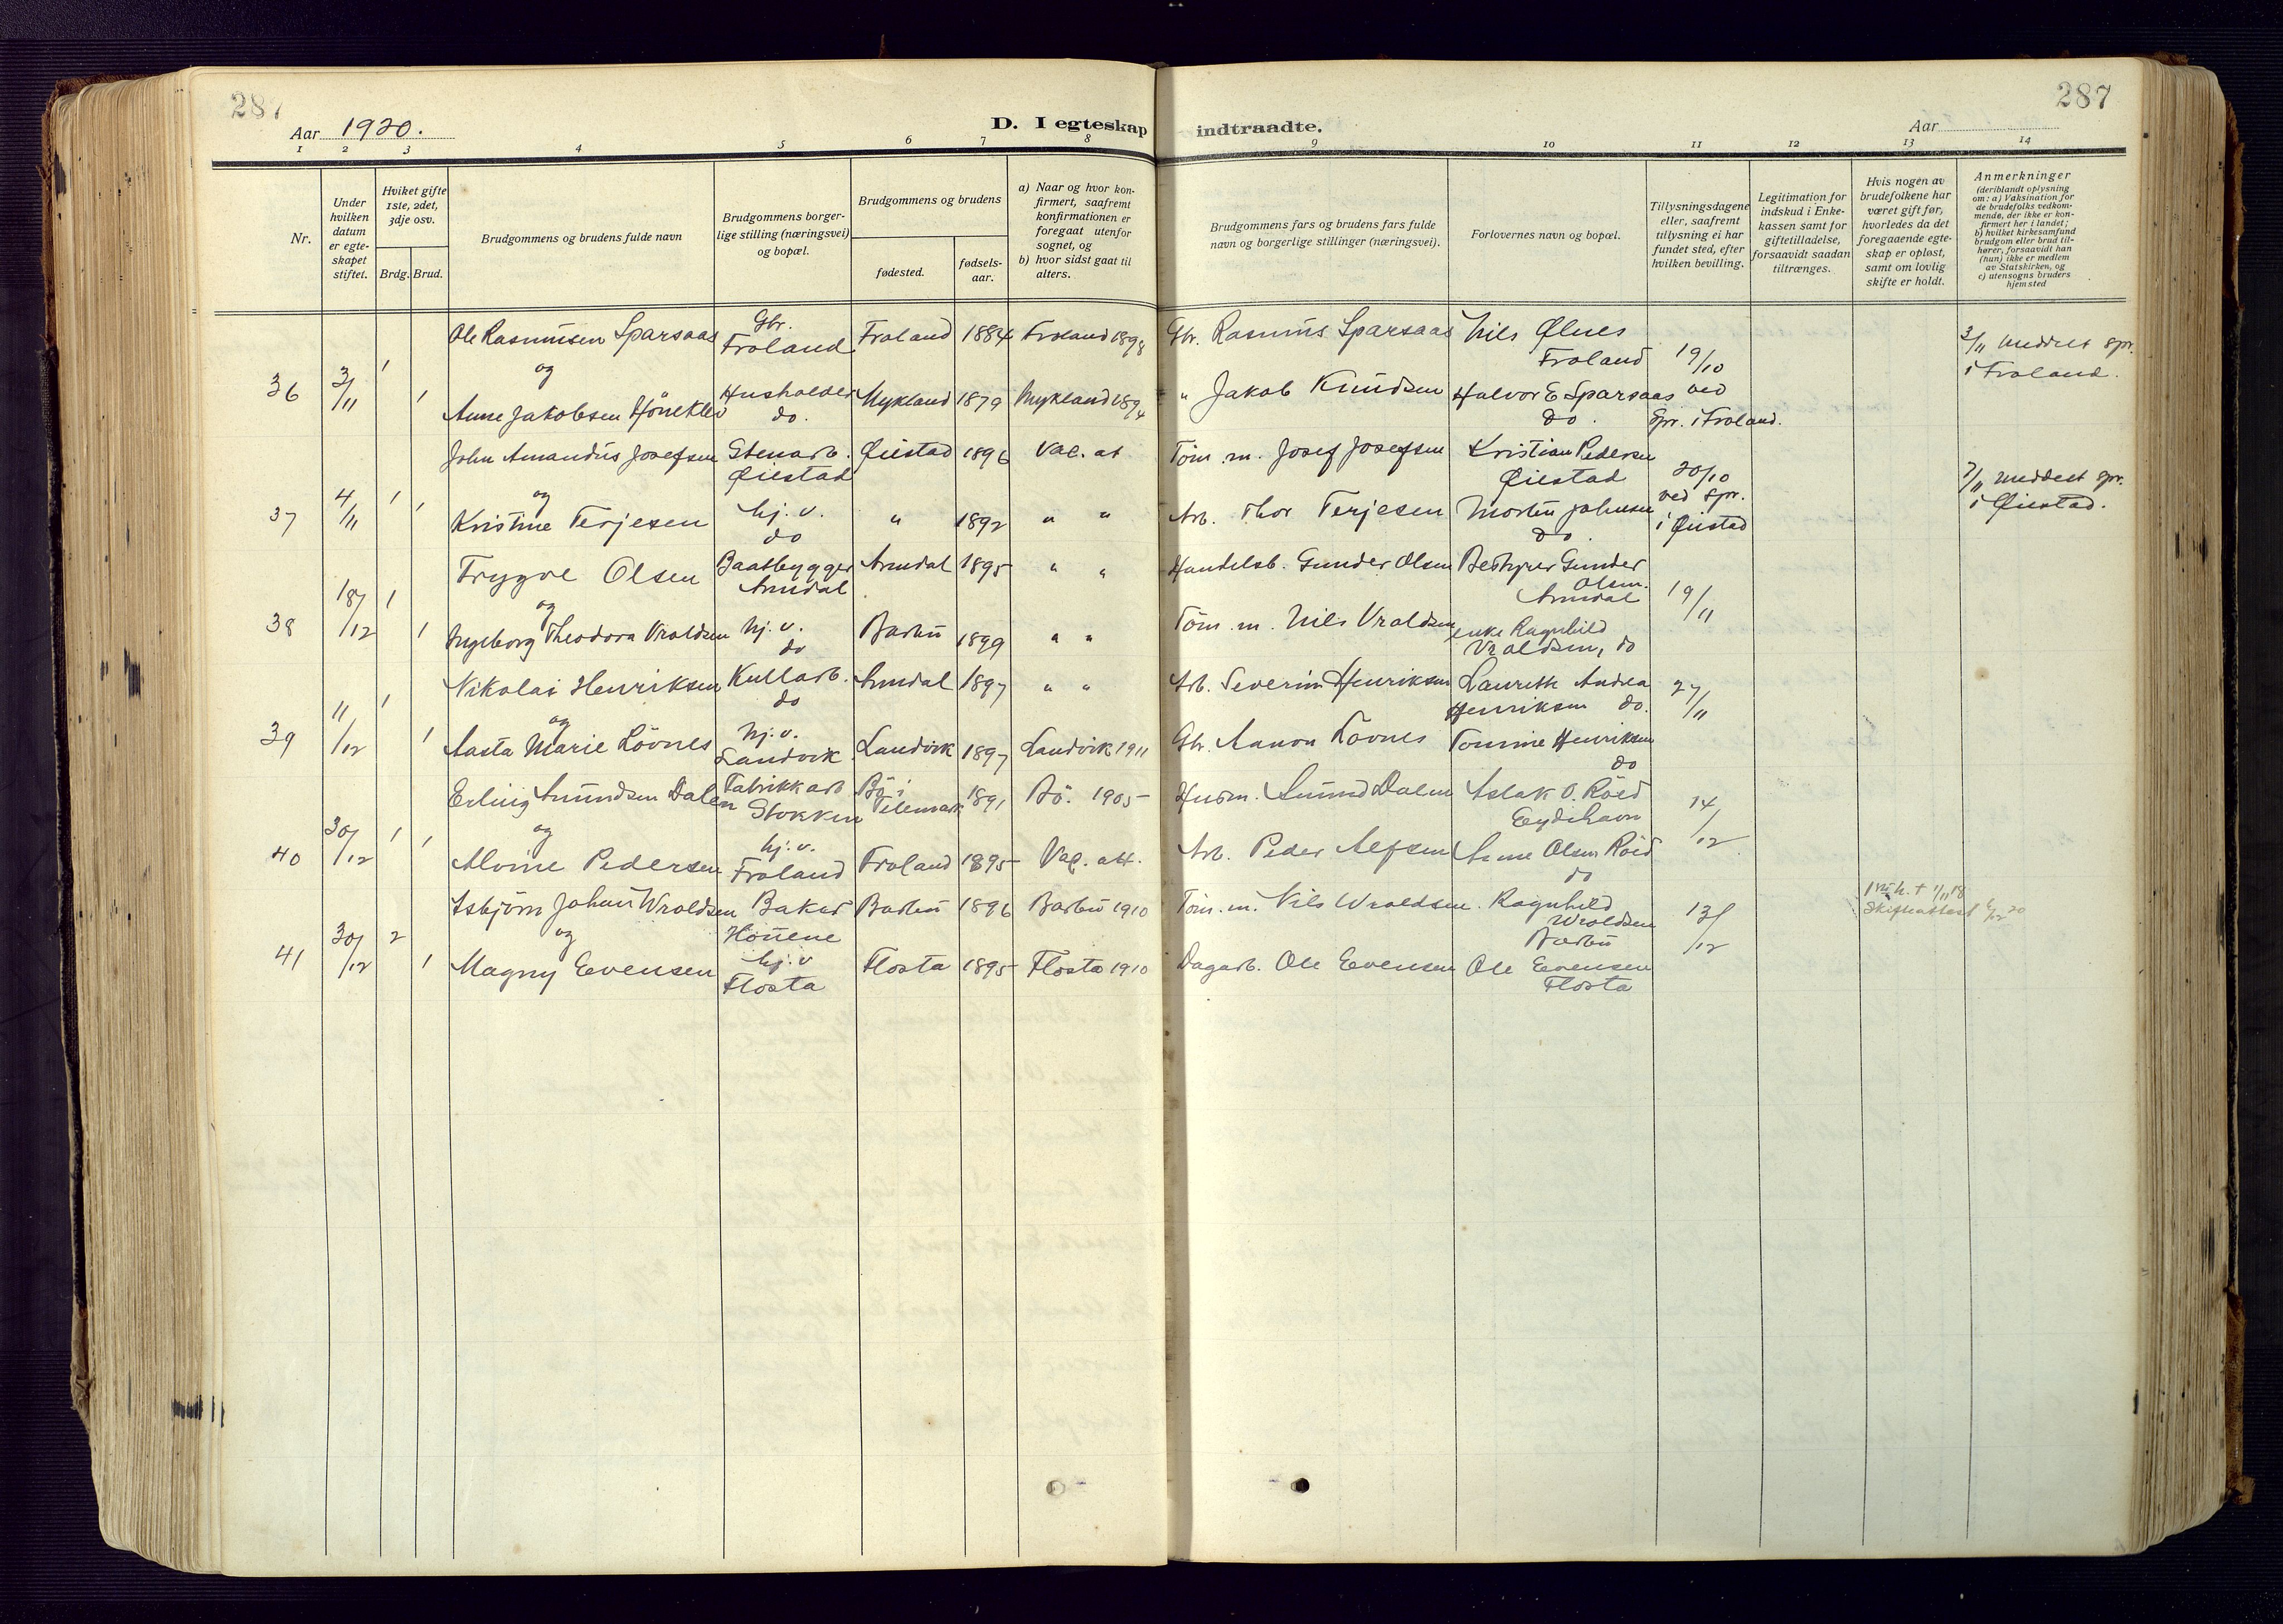 287
287
Aar 1920.
D. I egteskap indtraadte.
Aar
1 2 3 4 5 6 7 8 9 10 11 12 13 14
Nr.
Under hvilken datum er egteskapet stiftet.
Hviket gifte 1ste, 2det, 3dje osv.
Brdg. Brud.
Brudgommens og brudens fulde navn
Brudgommens borgerlige stilling (næringsvei) og bopæl.
Brudgommens og brudens
fødested.
fødselsaar.
a) Naar og hvor konfirmert, saafremt konfirmationen er foregaat utenfor sognet, og
b) hvor sidst gaat til alters.
Brudgommens fars og brudens fars fulde navn og borgerlige stillinger (næringsvei).
Forlovernes navn og bopæl.
Tillysningsdagene eller, saafremt tillysning ei har fundet sted, efter hvilken bevilling.
Legitimation for indskud i Enkekassen samt for giftetilladelse, forsaavidt saadan tiltrænges.
Hvis nogen av brudefolkene har været gift før, hvorledes da det foregaaende egteskap er opløst, samt om lovlig skifte er holdt.
Anmerkninger
(deriblandt oplysning om: a) Vaksination for de brudefolks vedkommende, der ikke er konfirmert her i landet; b) hvilket kirkesamfund brudgom eller brud tilhører, forsaavidt han (hun) ikke er medlem av Statskirken, og c) utensogns bruders hjemsted
36 3/11 1 Ole Rasmussen Sparsaas Gbr. Froland Froland 1884 Froland 1898 Gbr. Rasmus Sparsaas Nils Ølnes Froland 19/10 ved Spr. i Froland. 3/11 meddelt spr. i Froland.
og
1 Anne Jakobsen Husholder do. Mykland 1879 Mykland 1894 " Jakob Knudsen Halvor E Sparsaas do.
37 4/11 1 John Amandus Josefsen Stenarb. Øiestad Øiestad 1896 Vac. at Töm. m. Josef Josefsen Kristian Pedersen Øiestad 20/10 ved Spr. i Øiestad 7/11 meddelt spr. i Øiestad.
og
1 Kristine Terjesen hj. v. do " 1892 " " Arb. Thor Terjesen Morten Johnsen do.
38 18/12 1 Trygve Olsen Baatbygger Arendal Arendal 1895 " " Handelsb. Gunder Olsen Bestyrer Gunder Olsen. Arendal 19/11
og
1 Ingeborg Theodora Vraldsen hj. v. do Barbu 1899 " " Töm. m. Nils Vraldsen enke Ragnhild Vraldsen, do
39 11/12 1 Nikolai Henriksen Kullarb. do Arendal 1897 " " Arb. Severin Henriksen Andrea Henriksen do. 27/11
og
1 Aasta Marie Lövnes hj. v. Landvik Landvik 1897 Landvik 1911 Gbr. Aanon Lövnes Tomine Henriksen do
40 30/12 1 Erling Amundsen Dalen Fabrikkarb Stokken Bö i Telemark 1891 Bö. 1905 Husm. Amund Dalen Aslak O. Röed Eydehavn 14/12
og
1 Alvine Pedersen hj. v. Froland Froland 1895 Vac. att. Arb. Peder Alfsen Anne Olsen Röed do
41 30/12 2 Asbjörn Johan Wroldsen Baker Barbu 1896 Barbu 1910 Töm. m. Nils Wroldsen. Ragnhild Wroldsen Barbu 13/12 h. † 1/11 18 Skifteattest 20
og
1 Magny Evensen hj. v Flosta Flosta 1895 Flosta 1910 Dagarb. Ole Evensen Ole Evensen Flosta